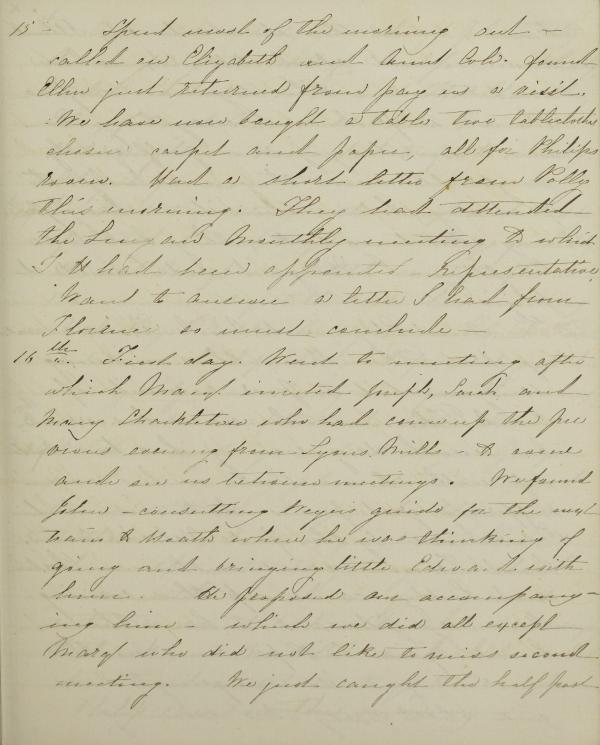 15 - Spent most of the morning out -
called on Elizabeth and Aunt Cole. found
Ellen just returned from pay us a visit.
We have now bought a table two
chosen carpet and paper, all for Philips
room. Had a short letter from Polly
this morning. They had attended
the Monthly meeting to which
I had been appointed Representative
Want to answer a letter I had from
Florence so must conclude -
16th. First day. Went to meeting after
which Mary invited Sarah and
Mary who had come up the pre
vious evening from Lyons Mills - to come
and see us between meetings. We found
John - consulting guide for the next
train to where he was thinking of
going and bringing little Edward with
him. He proposed our accompany-
ing him - which we did all except
Mary who did not like to miss second
meeting. We just caught the half past